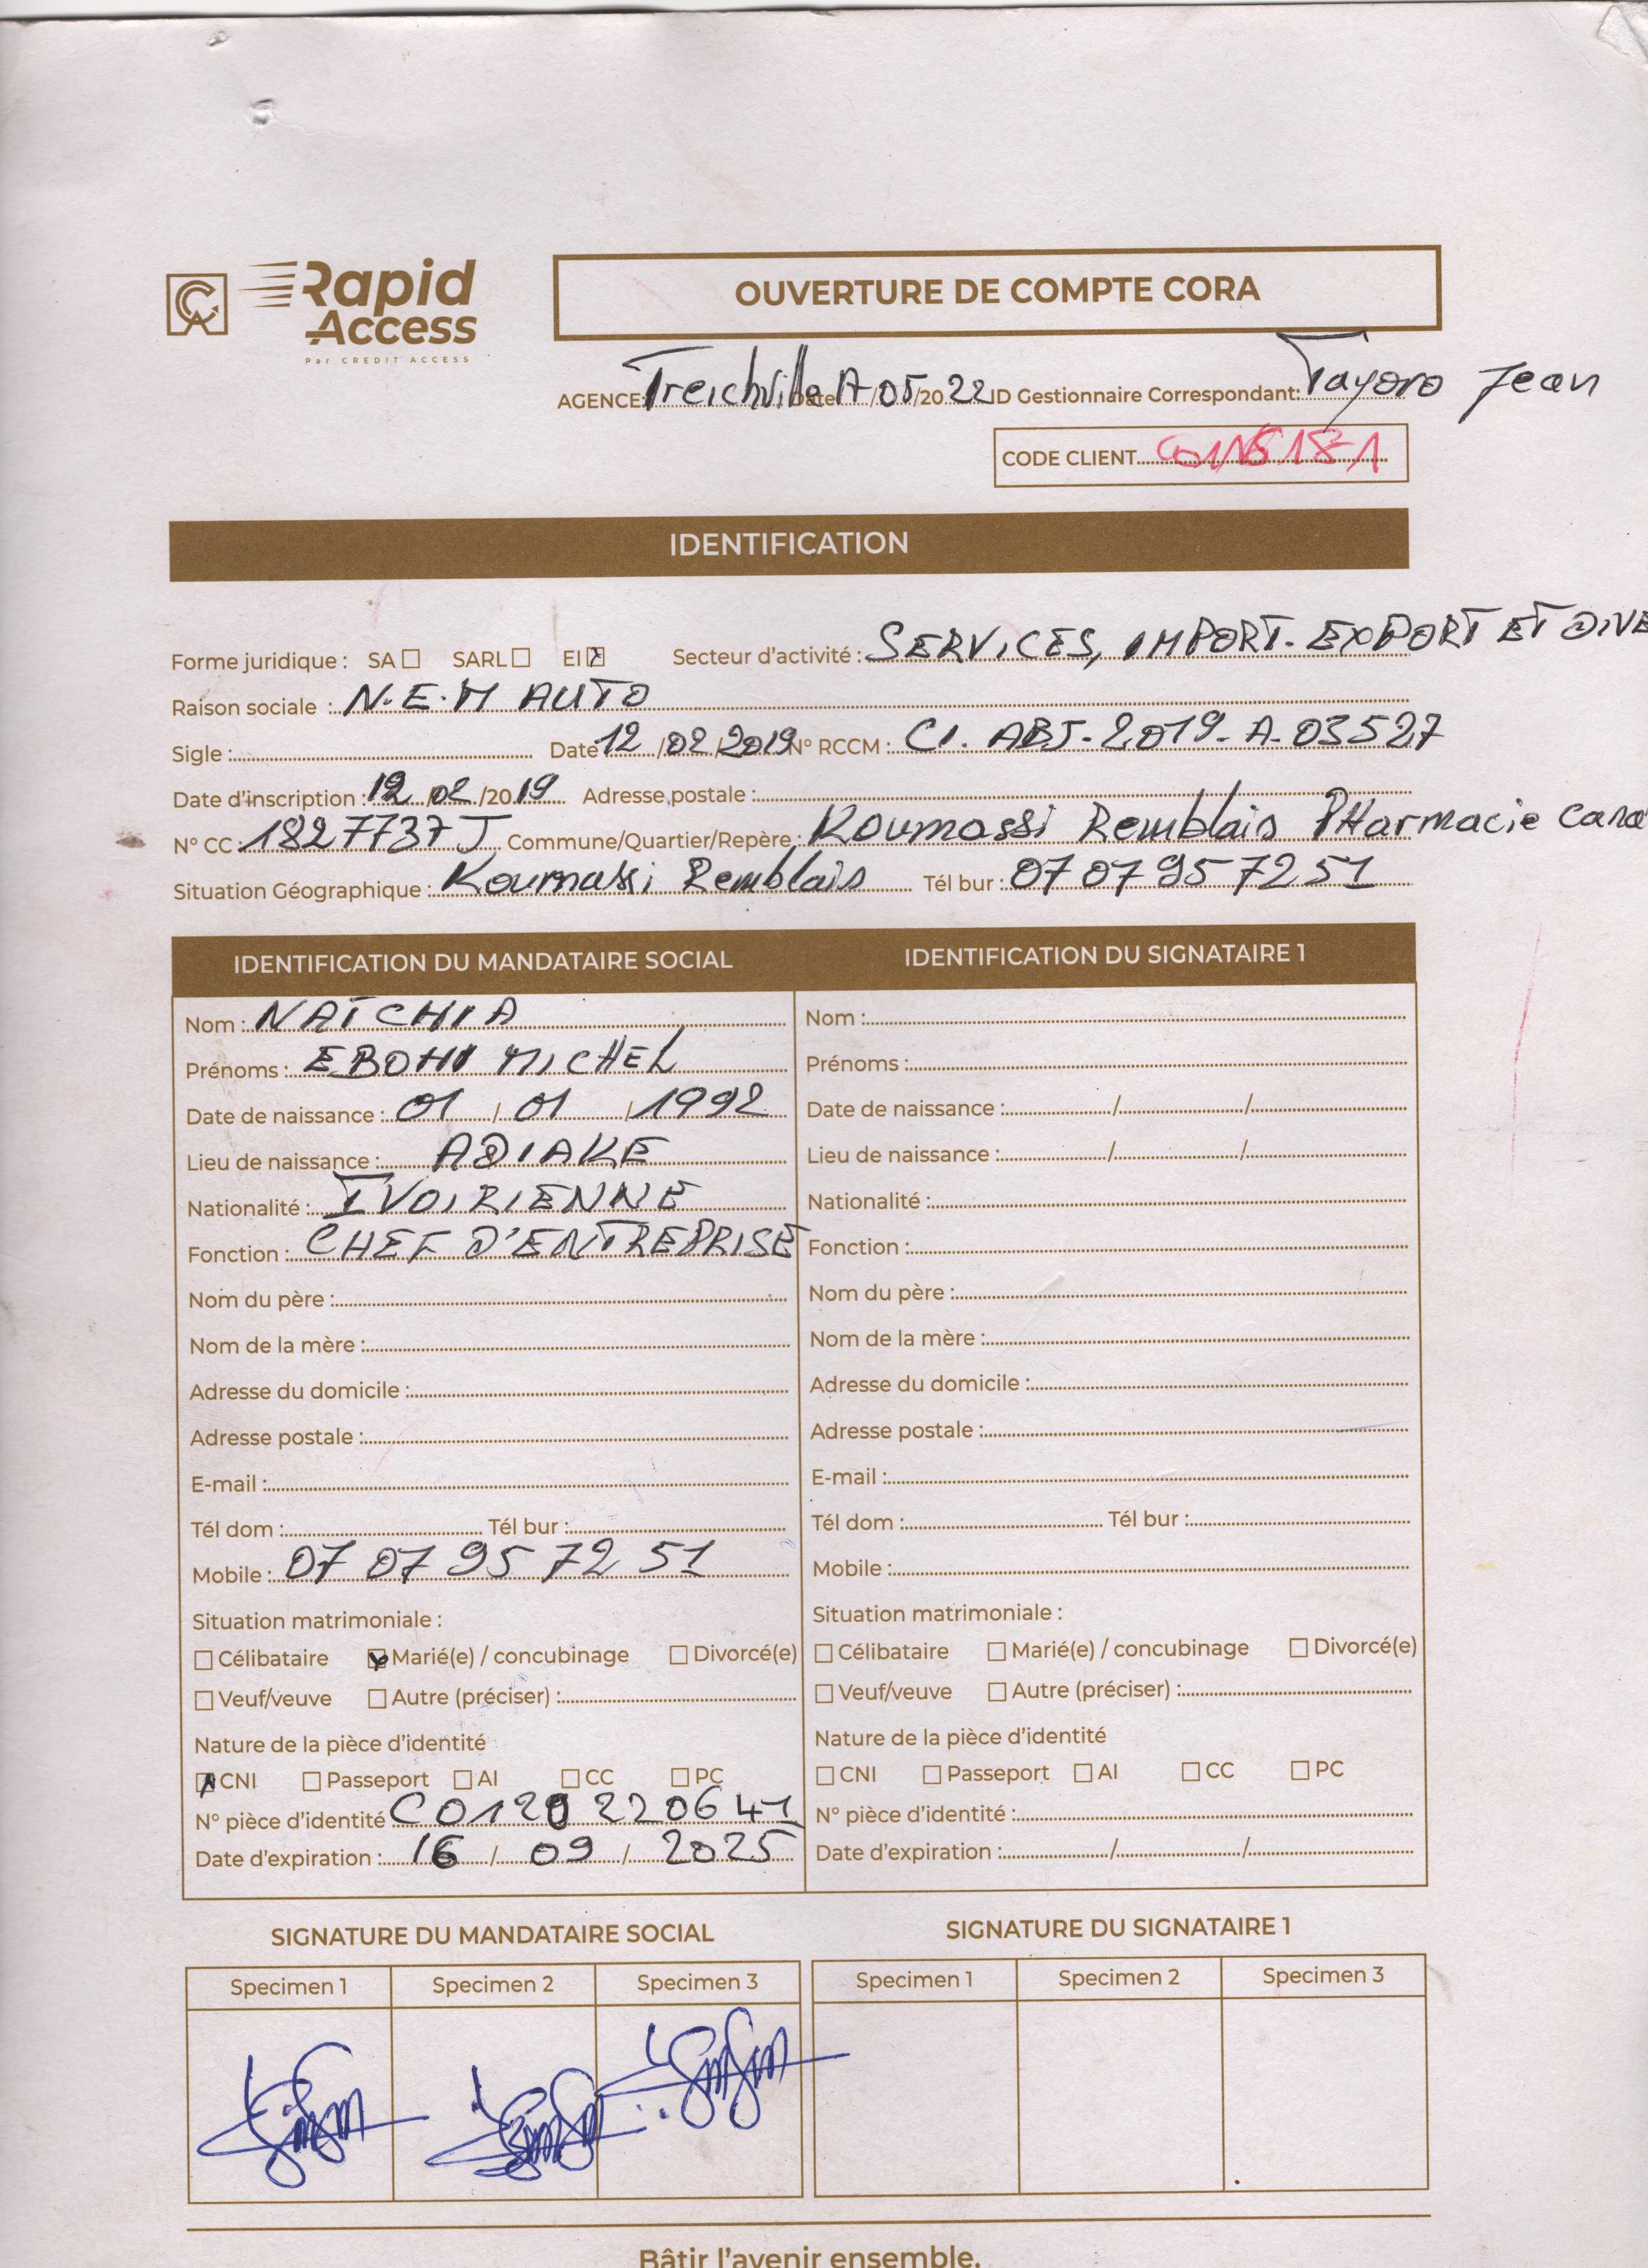 CA Rapid Access
Par CREDIT ACCESS
OUVERTURE DE COMPTE CORA
AGENCE: Treichville A Date /05/2022 ID Gestionnaire Correspondant: Tayoro Jean
CODE CLIENT
IDENTIFICATION
Forme juridique : SA SARL EI Secteur d'activité : SERVICES, IMPORT-EXPORT ET DIVE
Raison sociale : N.E.M AUTO
Sigle : Date 12/02/2019 N° RCCM : CI. ABJ-2019-A-03527
Date d'inscription : 12/02/2019 Adresse postale :
N° CC : 1827737 J Commune/Quartier/Repère : Koumassi Remblais PHarmacie Cana
Situation Géographique : Koumassi Remblais Tél bur : 07 07 95 72 51
IDENTIFICATION DU MANDATAIRE SOCIAL
Nom : NATCHIA
Prénoms : EBOHI MICHEL
Date de naissance : 01 / 01 / 1992
Lieu de naissance : ADIAKE
Nationalité : IVOIRIENNE
Fonction : CHEF D'ENTREPRISE
Nom du père :
Nom de la mère :
Adresse du domicile :
Adresse postale :
E-mail :
Tél dom : Tél bur :
Mobile : 07 07 95 72 51
Situation matrimoniale :
Célibataire Marié(e) / concubinage Divorcé(e)
Veuf/veuve Autre (préciser) :
Nature de la pièce d'identité
CNI Passeport AI CC PC
N° pièce d'identité C0120220641
Date d'expiration : 16 / 09 / 2025
IDENTIFICATION DU SIGNATAIRE 1
Nom :
Prénoms :
Date de naissance : / /
Lieu de naissance : / /
Nationalité :
Fonction :
Nom du père :
Nom de la mère :
Adresse du domicile :
Adresse postale :
E-mail :
Tél dom : Tél bur :
Mobile :
Situation matrimoniale :
Célibataire Marié(e) / concubinage Divorcé(e)
Veuf/veuve Autre (préciser) :
Nature de la pièce d'identité
CNI Passeport AI CC PC
N° pièce d'identité :
Date d'expiration : / /
SIGNATURE DU MANDATAIRE SOCIAL
Specimen 1 Specimen 2 Specimen 3
SIGNATURE DU SIGNATAIRE 1
Specimen 1 Specimen 2 Specimen 3
Bâtir l'avenir ensemble.